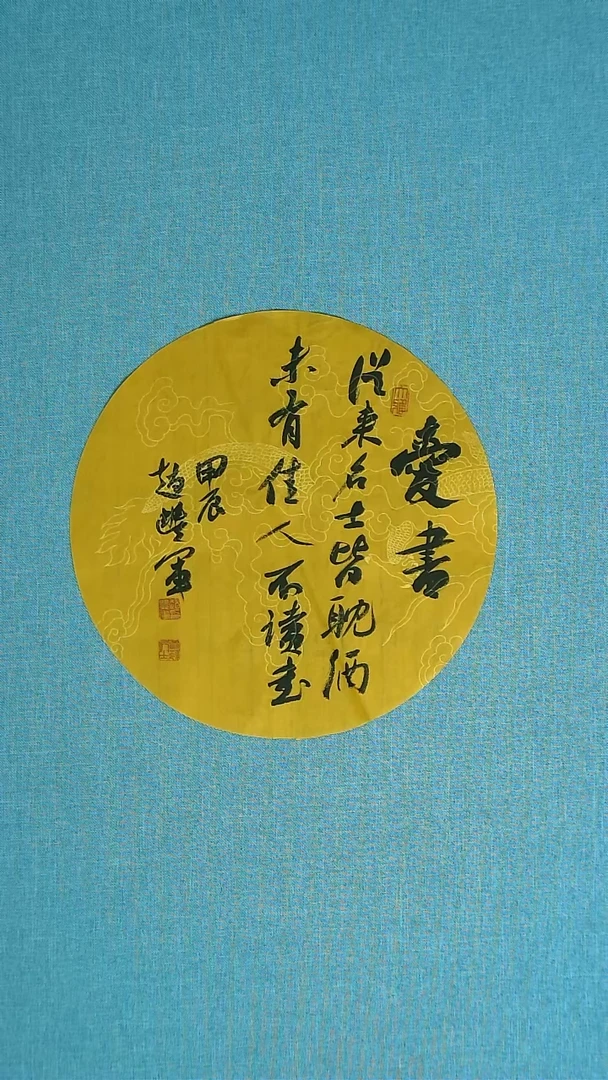 愛書
從來名士皆耽酒
未有佳人不讀書
甲辰
趙豐軍